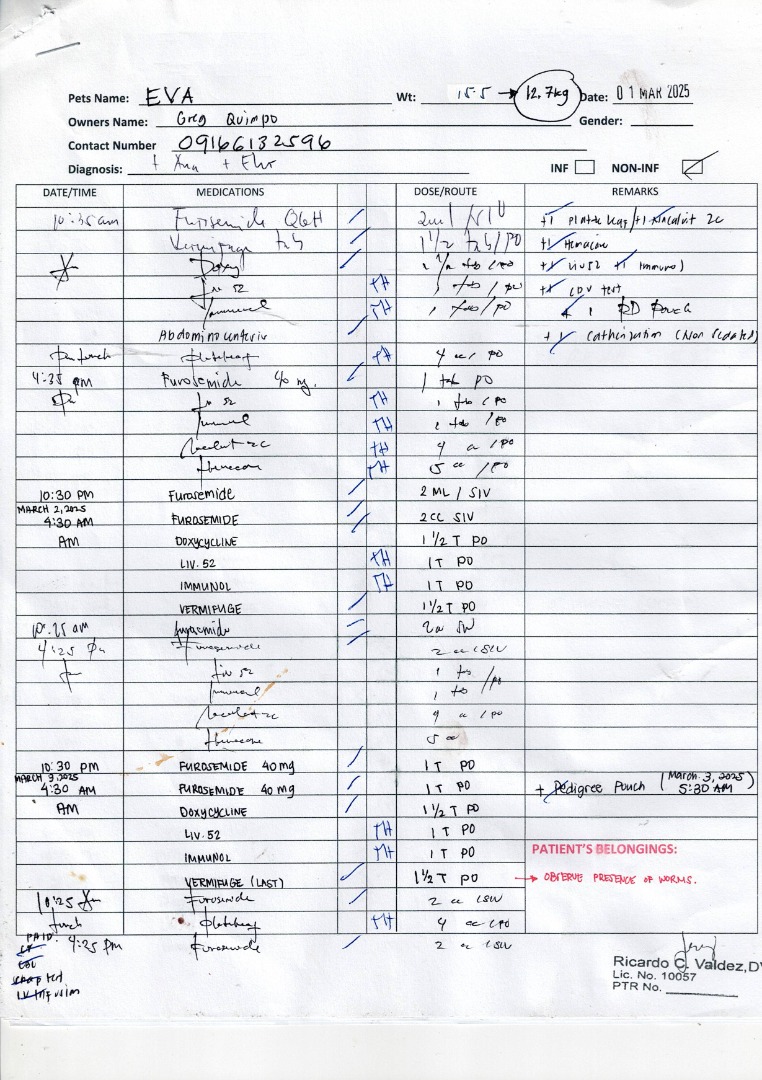 Pets Name: EVA Wt: 15.5 → 12.7kg Date: 01 MAR 2025
Owners Name: Greg Quimpo Gender:
Contact Number 09166132596
Diagnosis: + Ana + Ehr INF NON-INF
DATE/TIME MEDICATIONS DOSE/ROUTE REMARKS
10:35am Furosemide Q6H 2ml / SIV
Vermifuge tab 1 1/2 tab/PO +1 Hemacare
Doxy +1 Liv52 +1 Immunol
Liv 52 TH 1 tab / PO +1 CDV test
Immunol TH 1 tab/PO + 1 RD Pouch
Abdominocentesis +1 Catheterization (Non Sedated)
TH 4 cc / PO
4:35 pm Furosemide 40 mg. 1 tab PO
Liv 52 TH 1 tab / PO
Immunol TH 1 tab / PO
TH 4 cc / PO
TH 5 cc / PO
10:30 PM Furosemide 2 ML / SIV
MARCH 2, 2025
4:30 AM FUROSEMIDE 2CC SIV
AM DOXYCYCLINE 1 1/2 T PO
LIV. 52 TH 1 T PO
IMMUNOL TH 1 T PO
VERMIFUGE 1 1/2 T PO
10:25 am furosemide 2cc SIV
4:25 pm Furosemide 2 cc / SIV
Liv 52 1 tab
Immunol 1 tab / PO
4 cc / PO
5 cc
10:30 pm FUROSEMIDE 40 mg 1 T PO
MARCH 3, 2025
4:30 AM FUROSEMIDE 40 mg 1 T PO + Pedigree Pouch (March 3, 2025 5:30 AM)
AM DOXYCYCLINE 1 1/2 T PO
LIV. 52 TH 1 T PO
IMMUNOL TH 1 T PO
PATIENT'S BELONGINGS:
VERMIFUGE (LAST) 1 1/2 T PO → OBSERVE PRESENCE OF WORMS.
10:25 Furosemide 2 cc / SIV
lunch TH 4 cc / PO
PAID: 4:25 pm Furosemide 2 cc / SIV
CDV
IV Infusion
Ricardo C. Valdez, DV
Lic. No. 10057
PTR No.